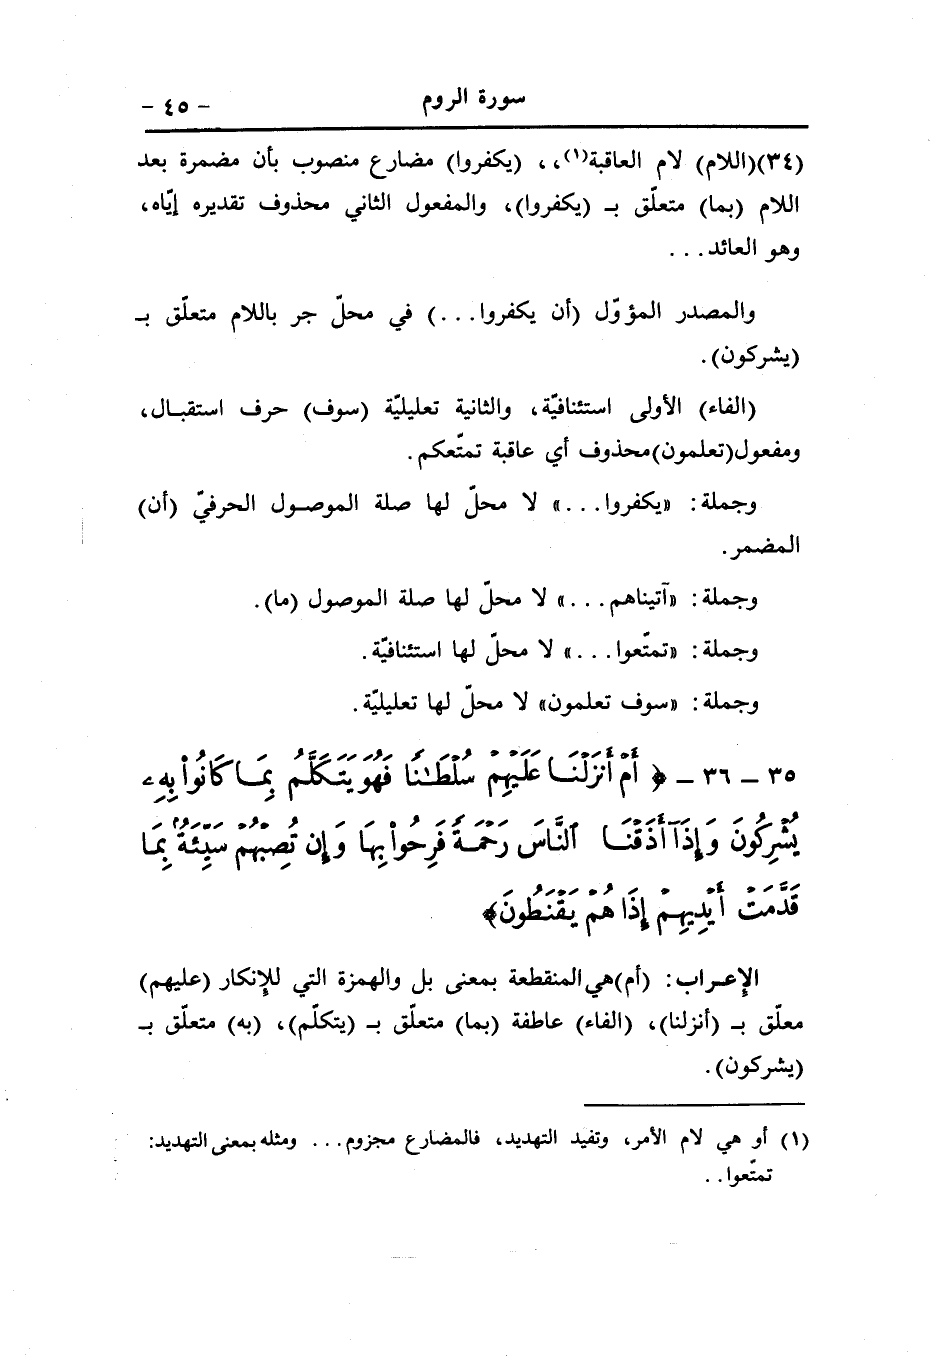 سورة الروم
- ٤٥ -
(٣٤)(اللام) لام العاقبة(١)،، (يكفروا) مضارع منصوب بأن مضمرة بعد
اللام (بما) متعلّق بـ (يكفروا)، والمفعول الثاني محذوف تقديره إيّاه،
وهو العائد...
والمصدر المؤوّل (أن يكفروا...) في محلّ جر باللام متعلّق بـ
(يشركون).
(الفاء) الأولى استئنافيّة، والثانية تعليليّة (سوف) حرف استقبال،
ومفعول(تعلمون)محذوف أي عاقبة تمتّعكم.
وجملة: «يكفروا...» لا محلّ لها صلة الموصول الحرفيّ (أن)
المضمر.
وجملة: «آتيناهم...» لا محلّ لها صلة الموصول (ما).
وجملة: «تمتّعوا...» لا محلّ لها استئنافيّة.
وجملة: «سوف تعلمون» لا محلّ لها تعليليّة.
٣٥ - ٣٦ - ﴿أَمْ أَنزَلْنَا عَلَيْهِمْ سُلْطَـٰنًا فَهُوَ يَتَكَلَّمُ بِمَا كَانُوا۟ بِهِۦ
يُشْرِكُونَ وَإِذَآ أَذَقْنَا ٱلنَّاسَ رَحْمَةً فَرِحُوا۟ بِهَا وَإِن تُصِبْهُمْ سَيِّئَةٌۢ بِمَا
قَدَّمَتْ أَيْدِيهِمْ إِذَا هُمْ يَقْنَطُونَ﴾
الإعراب: (أم)هي المنقطعة بمعنى بل والهمزة التي للإنكار (عليهم)
معلّق بـ (أنزلنا)، (الفاء) عاطفة (بما) متعلّق بـ (يتكلّم)، (به) متعلّق بـ
(يشركون).
(١) أو هي لام الأمر، وتفيد التهديد، فالمضارع مجزوم... ومثله بمعنى التهديد:
تمتّعوا..